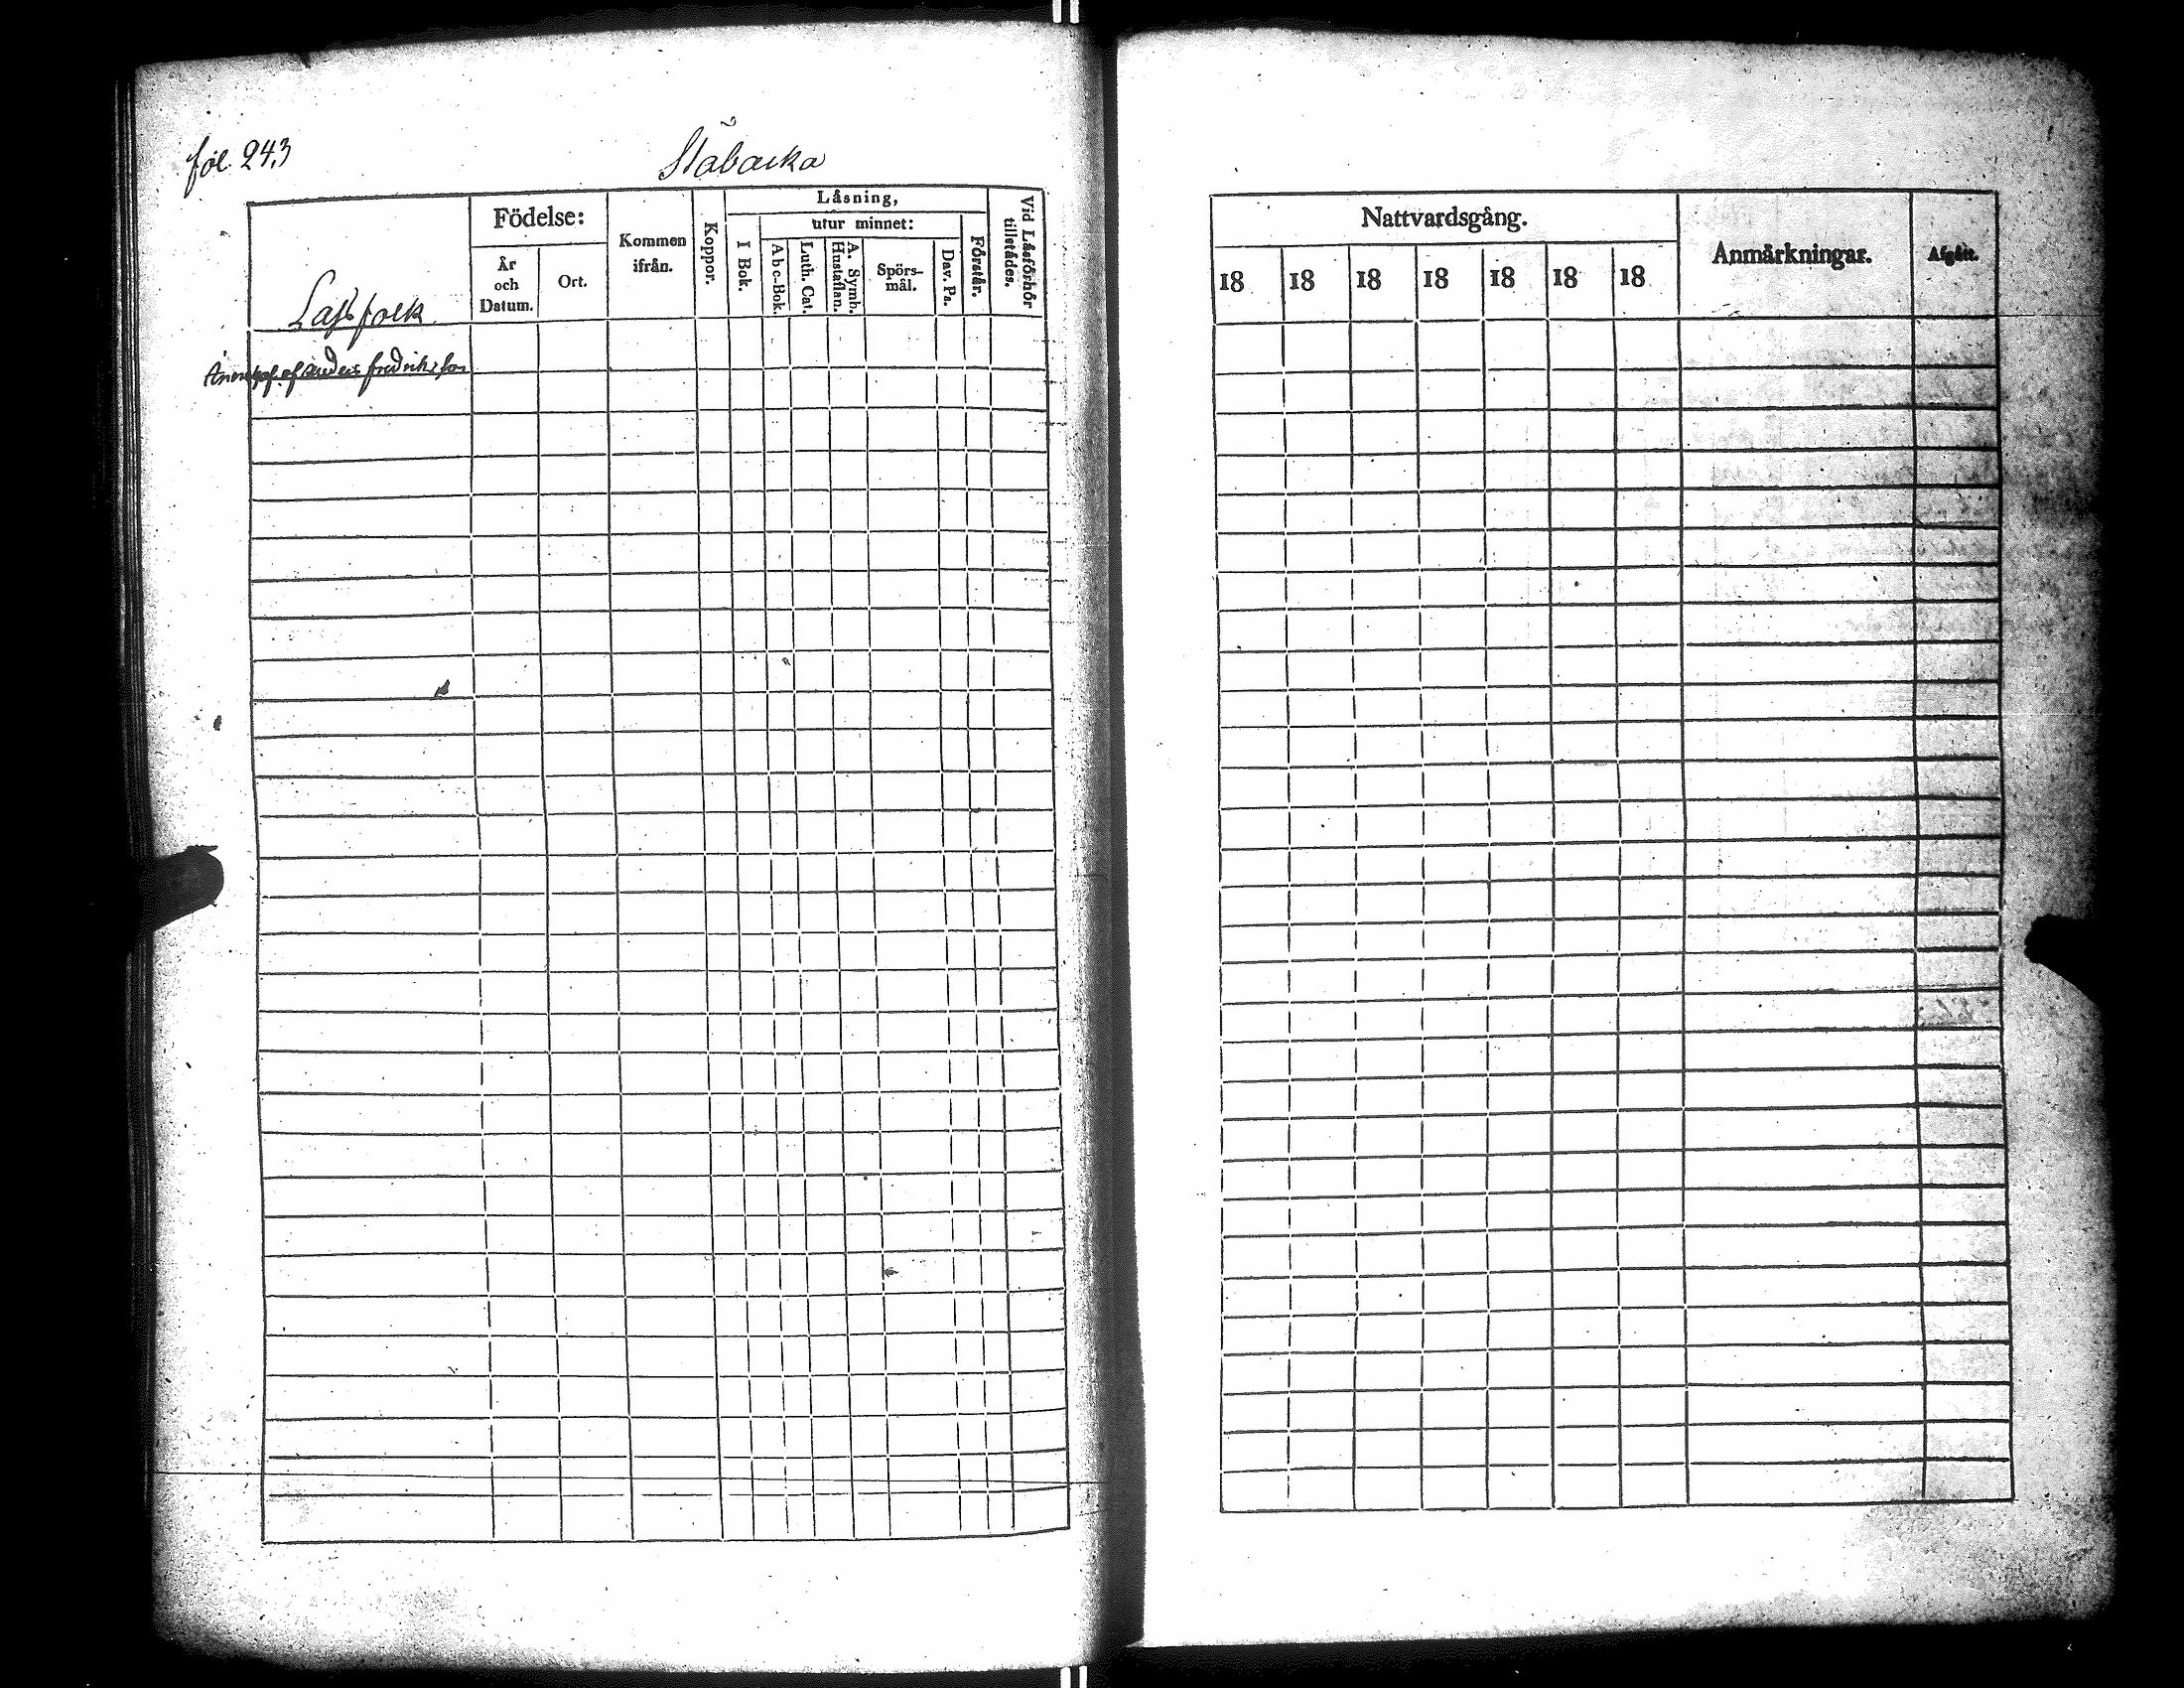 fol. 243
Stabacka
Födelse:
Kommen
ifrån.
Koppor.
Läsning,
utur minnet:
I Bok.
Abc-Bok.
Luth. Cat.
A. Symb.
Hustaflan.
Spörs-
mål.
Dav. Ps.
Förstår.
Vid Läsförhör
tillstädes.
År
och
Datum.
Ort.
folk
Anders Fredriksson
Nattvardsgång.
18 18 18 18 18 18 18
Anmärkningar.
Afgått.